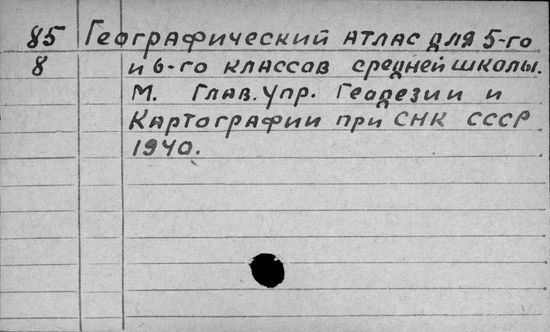 85 Географический атлас для 5-го
8 и 6-го классов средней школы.
М. Глав. Упр. Геодезии и
Картографии при СНК СССР
1940.